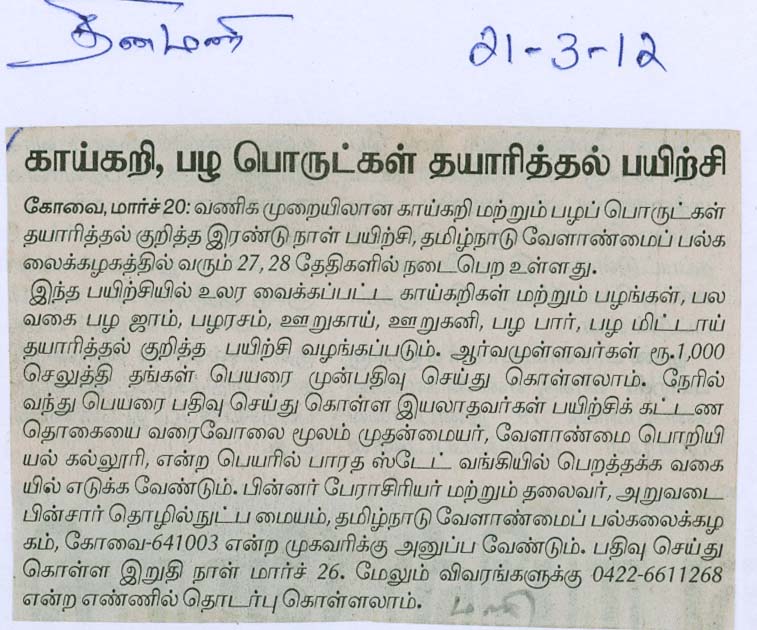 தினமணி 21-3-12
காய்கறி, பழ பொருட்கள் தயாரித்தல் பயிற்சி
கோவை, மார்ச் 20: வணிக முறையிலான காய்கறி மற்றும் பழப் பொருட்கள்
தயாரித்தல் குறித்த இரண்டு நாள் பயிற்சி, தமிழ்நாடு வேளாண்மைப் பல்க
லைக்கழகத்தில் வரும் 27, 28 தேதிகளில் நடைபெற உள்ளது.
இந்த பயிற்சியில் உலர வைக்கப்பட்ட காய்கறிகள் மற்றும் பழங்கள், பல
வகை பழ ஜாம், பழரசம், ஊறுகாய், ஊறுகனி, பழ பார், பழ மிட்டாய்
தயாரித்தல் குறித்த பயிற்சி வழங்கப்படும். ஆர்வமுள்ளவர்கள் ரூ.1,000
செலுத்தி தங்கள் பெயரை முன்பதிவு செய்து கொள்ளலாம். நேரில்
வந்து பெயரை பதிவு செய்து கொள்ள இயலாதவர்கள் பயிற்சிக் கட்டண
தொகையை வரைவோலை மூலம் முதன்மையர், வேளாண்மை பொறியி
யல் கல்லூரி, என்ற பெயரில் பாரத ஸ்டேட் வங்கியில் பெறத்தக்க வகை
யில் எடுக்க வேண்டும். பின்னர் பேராசிரியர் மற்றும் தலைவர், அறுவடை
பின்சார் தொழில்நுட்ப மையம், தமிழ்நாடு வேளாண்மைப் பல்கலைக்கழ
கம், கோவை-641003 என்ற முகவரிக்கு அனுப்ப வேண்டும். பதிவு செய்து
கொள்ள இறுதி நாள் மார்ச் 26. மேலும் விவரங்களுக்கு 0422-6611268
என்ற எண்ணில் தொடர்பு கொள்ளலாம்.